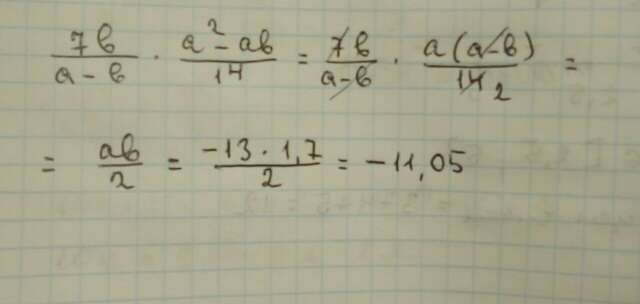 7b/(a-b) · (a²-ab)/14 = 7b/(a-b) · a(a-b)/14 2 =
= ab/2 = (-13 · 1,7)/2 = -11,05